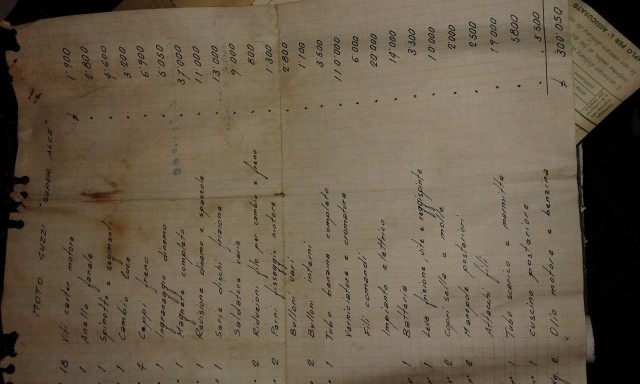 MOTO GUZZI "SUPER ALCE"
18 Viti carter motore £ 1'900
1 Anello fanale 2'800
1 Spinotto e segmenti 4'600
1 Cambio luce 3'200
4 Ceppi freno 6'900
1 Ingranaggio dinamo 5'050
1 Magnete completo 37'000
1 Revisione dinamo e spazzole 11'000
1 Serie dischi frizione 13'000
Saldature varie 9'000
2 Riduzioni filo per cambio e freno 800
2 Perni fissaggi motore 1'300
Bulloni vari 2'800
2 Bulloni interni 1'100
1 Tubo benzina completo 3'500
Verniciatura e cromatura 110'000
Fili comandi 6'000
Impianto elettrico 20'000
1 Batteria 14'000
1 Leve frizione, vite e reggispinta 3'300
2 Copri sella e molle 10'000
2 Manopole posteriori 2'000
Attacchi fili 2'500
1 Tubo scarico e marmitta 19'000
1 Cuscino posteriore 5'800
Kg. 2 Olio motore e benzina 5'500
£ 300'050
PER L'ASSICURATO